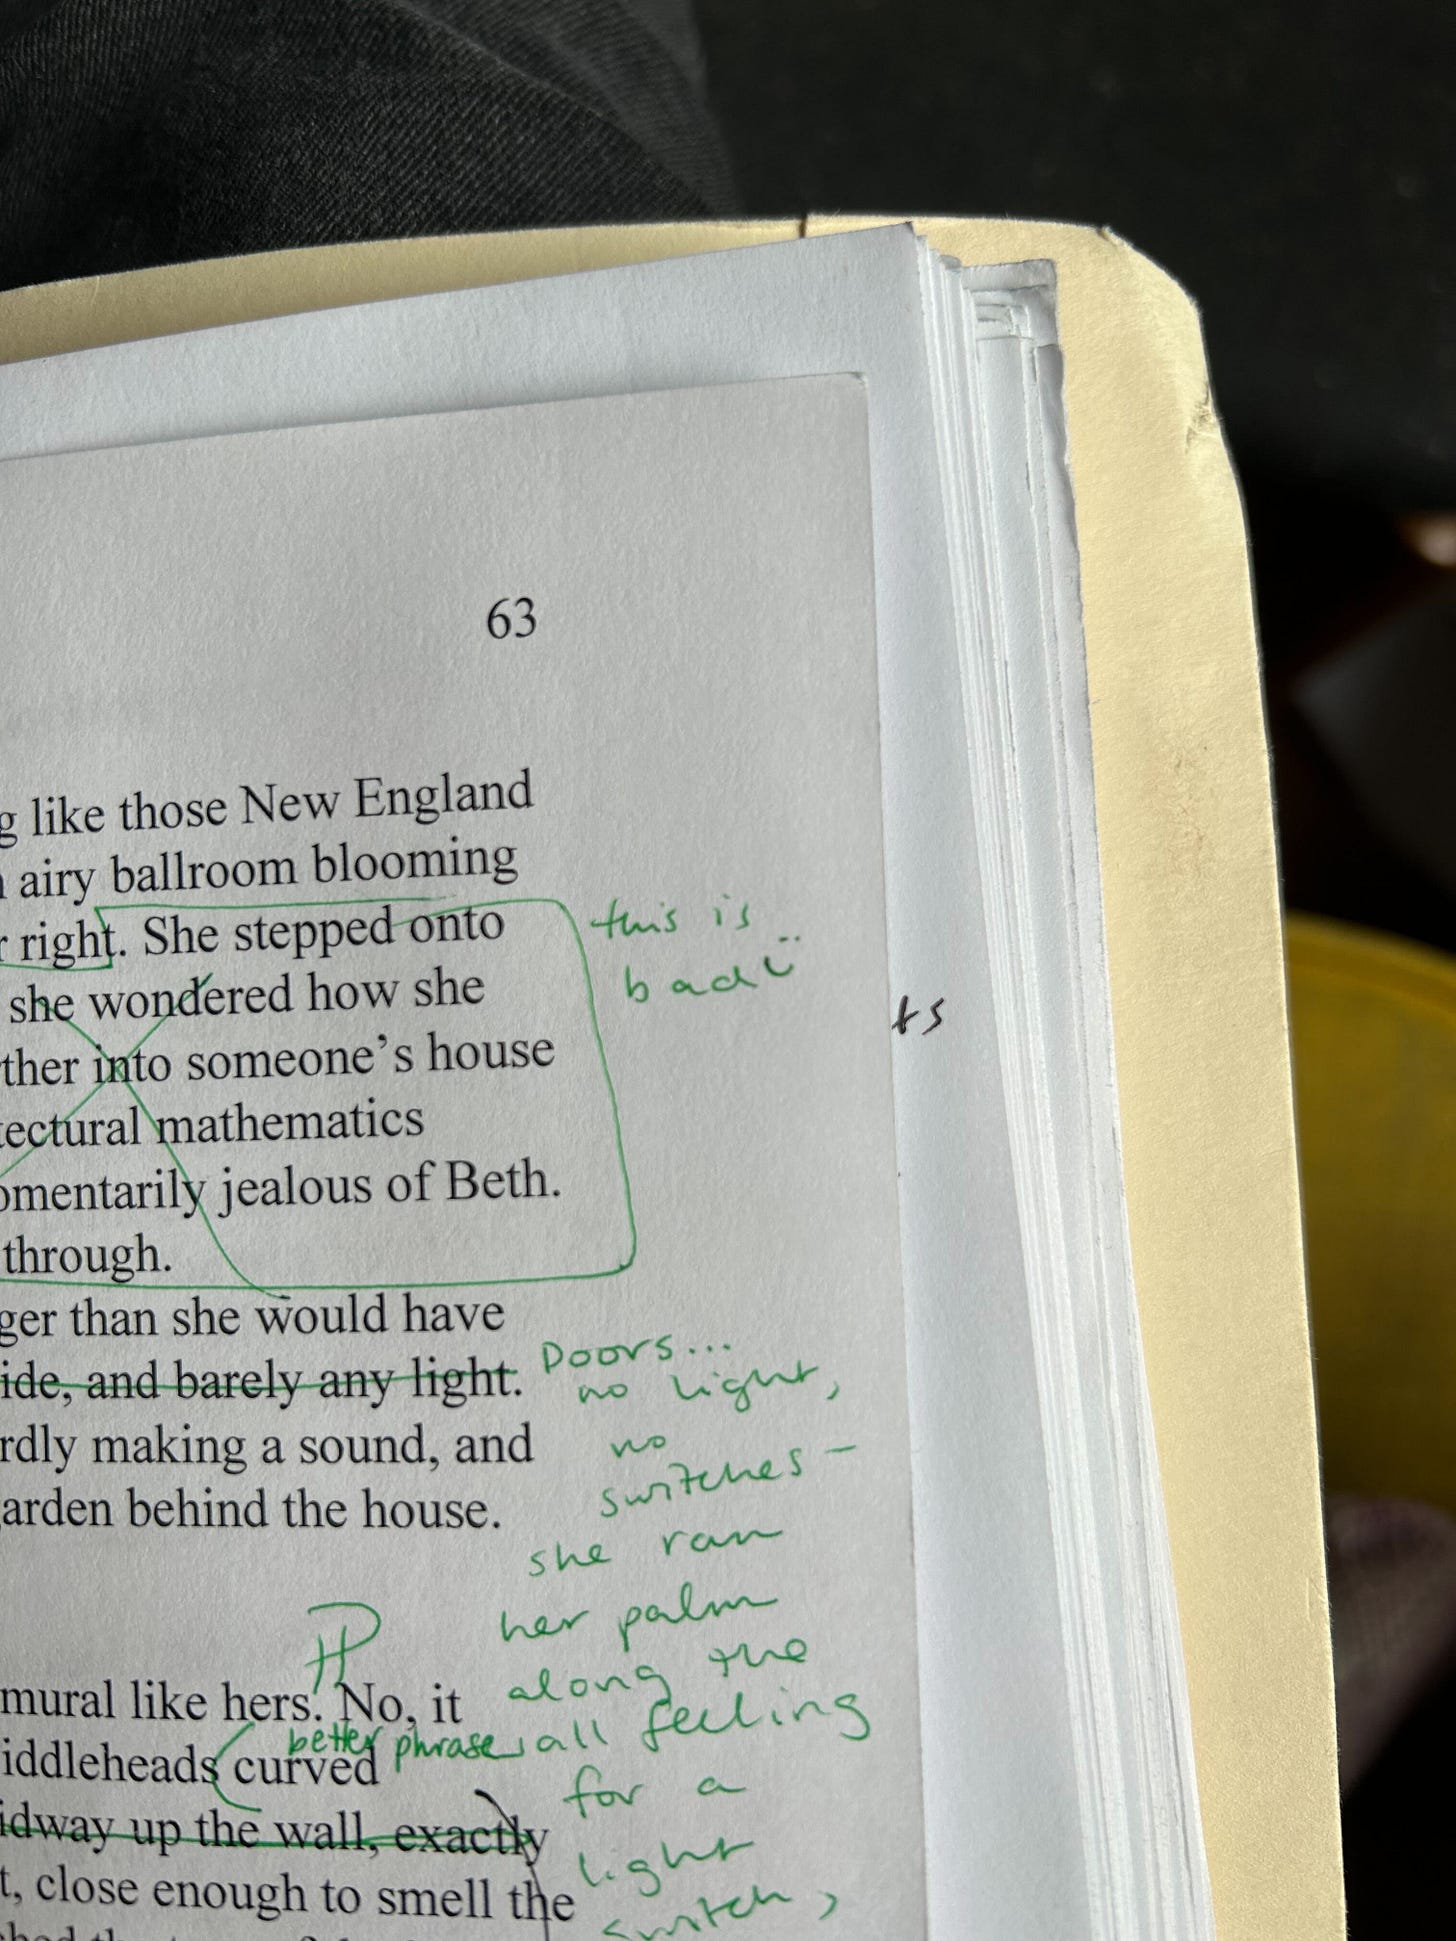 63
g like those New England
airy ballroom blooming
r right. She stepped onto
she wondered how she
ther into someone's house
tectural mathematics
omentarily jealous of Beth.
through.
ger than she would have
ide, and barely any light.
rdly making a sound, and
arden behind the house.
mural like hers. No, it
iddleheads curved
idway up the wall, exactly
t, close enough to smell the
this is
bad
ts
Doors...
no light,
no
switches –
she ran
her palm
along the
wall feeling
for a
light
switch,
better phrase